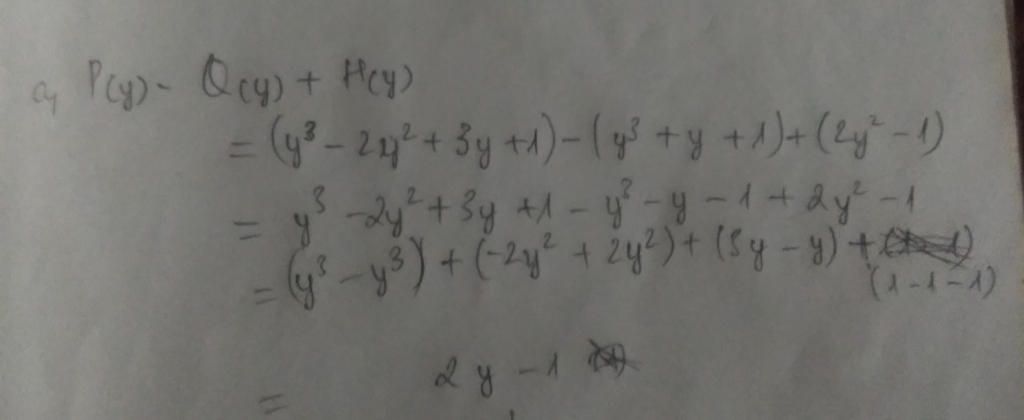 a, P(y) - Q(y) + H(y)
= (y³ - 2y² + 3y + 1) - (y³ + y + 1) + (2y² - 1)
= y³ - 2y² + 3y + 1 - y³ - y - 1 + 2y² - 1
= (y³ - y³) + (-2y² + 2y²) + (3y - y) +
(1 - 1 - 1)
= 2y - 1